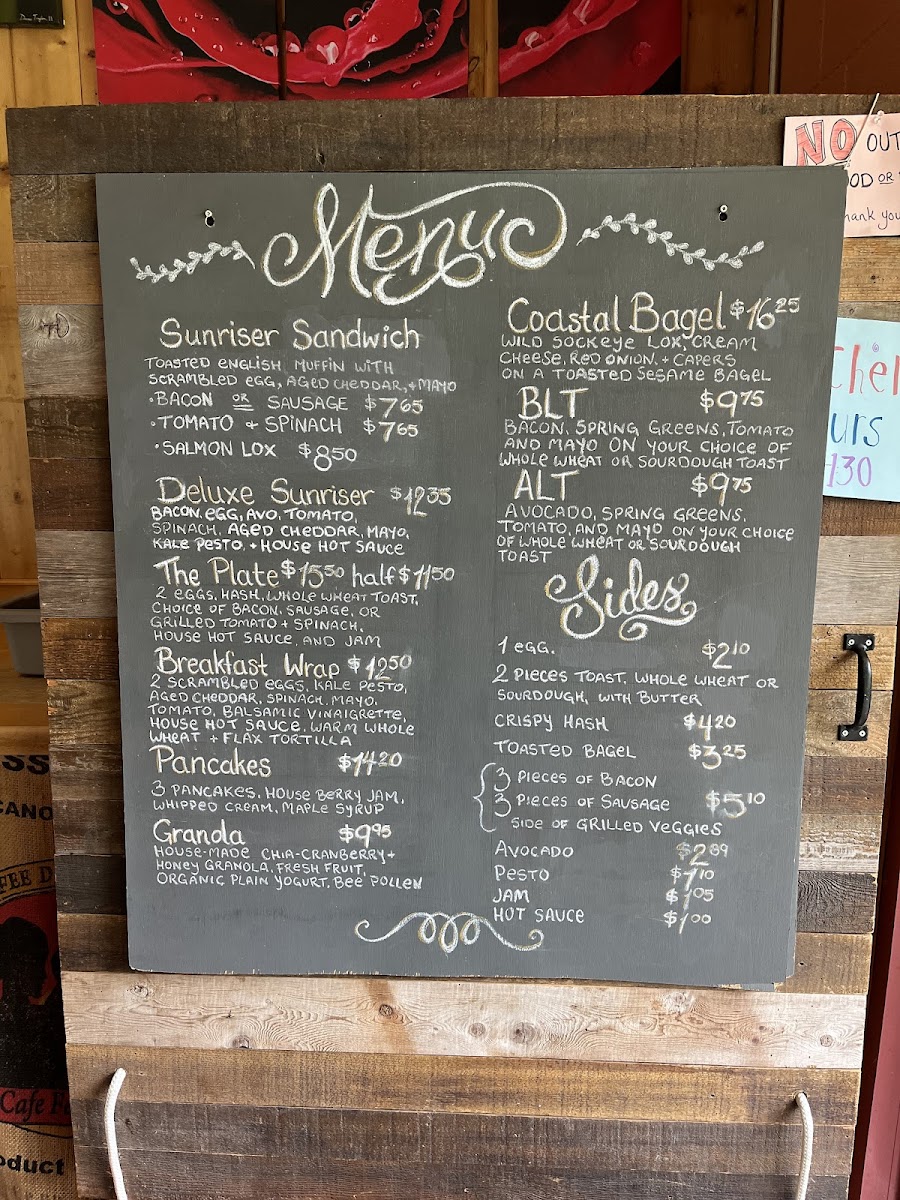 Dean Taylor 11
NO OUT
OOD OR
hank you
Menu
Sunriser Sandwich
TOASTED ENGLISH MUFFIN WITH
SCRAMBLED EGG, AGED CHEDDAR, + MAYO
• BACON OR SAUSAGE $7.65
• TOMATO + SPINACH $7.65
• SALMON LOX $8.50
Deluxe Sunriser $12.35
BACON, EGG, AVO, TOMATO,
SPINACH, AGED CHEDDAR, MAYO,
KALE PESTO, + HOUSE HOT SAUCE
The Plate $15.50 half $11.50
2 EGGS, HASH, WHOLE WHEAT TOAST,
CHOICE OF BACON, SAUSAGE, OR
GRILLED TOMATO + SPINACH,
HOUSE HOT SAUCE, AND JAM
Breakfast Wrap $12.50
2 SCRAMBLED EGGS, KALE PESTO,
AGED CHEDDAR, SPINACH, MAYO,
TOMATO, BALSAMIC VINAIGRETTE,
HOUSE HOT SAUCE, WARM WHOLE
WHEAT + FLAX TORTILLA
Pancakes $14.20
3 PANCAKES, HOUSE BERRY JAM,
WHIPPED CREAM, MAPLE SYRUP
Granola $9.95
HOUSE-MADE CHIA-CRANBERRY +
HONEY GRANOLA, FRESH FRUIT,
ORGANIC PLAIN YOGURT, BEE POLLEN
Coastal Bagel $16.25
WILD SOCKEYE LOX, CREAM
CHEESE, RED ONION, + CAPERS
ON A TOASTED SESAME BAGEL
BLT $9.75
BACON, SPRING GREENS, TOMATO
AND MAYO ON YOUR CHOICE OF
WHOLE WHEAT OR SOURDOUGH TOAST
ALT $9.75
AVOCADO, SPRING GREENS,
TOMATO, AND MAYO ON YOUR CHOICE
OF WHOLE WHEAT OR SOURDOUGH
TOAST
Sides
1 EGG. $2.10
2 PIECES TOAST, WHOLE WHEAT OR
SOURDOUGH, WITH BUTTER
CRISPY HASH $4.20
TOASTED BAGEL $3.25
3 PIECES OF BACON
3 PIECES OF SAUSAGE $5.10
SIDE OF GRILLED VEGGIES
AVOCADO $2.89
PESTO $1.10
JAM $1.05
HOT SAUCE $1.00
chen
urs
130
SS
CANO
FEE D
Cafe Fe
oduct